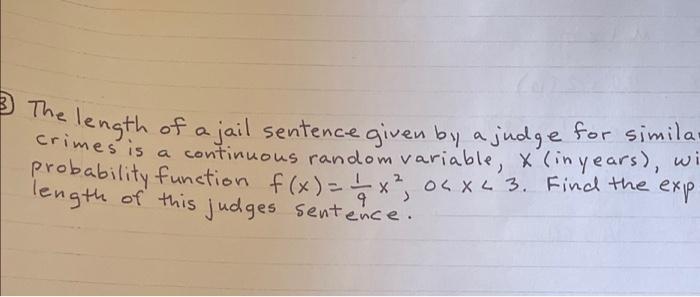 3) The length of a jail sentence given by a judge for simila
crimes is a continuous random variable, X (in years), wi
probability function f(x) = 1/9 x², 0 < x < 3. Find the exp
length of this judges sentence.